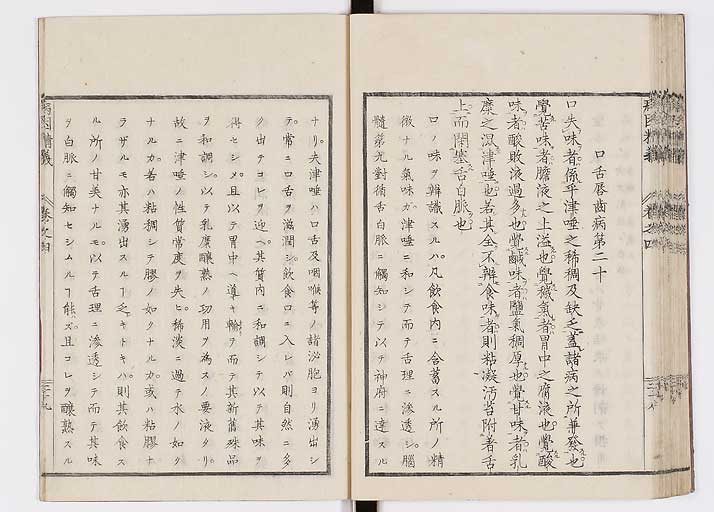 口舌唇歯病第二十
口失味者係乎津唾之稀稠及缺乏蓋諸病之所兼發也
覺苦味者膽液之上溢也覺穢氣者胃中之腐液也覺酸
味者酸敗液過多也覺鹹味者鹽氣稠厚也覺甘味者乳
糜之混津唾也若其全不辨食味者則粘凝汚苔附著舌
上而閉塞舌白脈也
口ノ味ヲ辨識スルハ凡飲食内ニ含蓄スル所ノ精
微ナル氣味ガ津唾ニ和シテ而テ舌理ニ滲透シ腦
髓第九對循舌白脈ニ觸知シテ以テ神府ニ達スル
ナリ夫津唾ハ口舌及咽喉等ノ諸泌胞ヨリ湧出シ
テ常ニ口舌ヲ滋潤シ飲食口ニ入レバ則自然ニ多
ク出テコレヲ迎ヘ其質内ニ和調シテ以テ其味ヲ
得セシメ且以テ胃中ヘ導キ輸テ而テ其新舊殊品
ヲ和調シ以テ乳糜釀熟ノ功用ヲ為スノ要液タリ
故ニ津唾ノ性質常度ヲ失ヒ稀淡ニ過テ水ノ如ク
ナルカ若ハ粘稠シテ膠ノ如クナルカ或ハ粘膠ナ
ラザルモ亦其湧出スルヿ乏キトキハ則其飲食ス
ル所ノ甘美ナルモ以テ舌理ニ滲透シテ而テ其味
ヲ白脈ニ觸知セシムルヿ能ズ且コレヲ釀熟スル